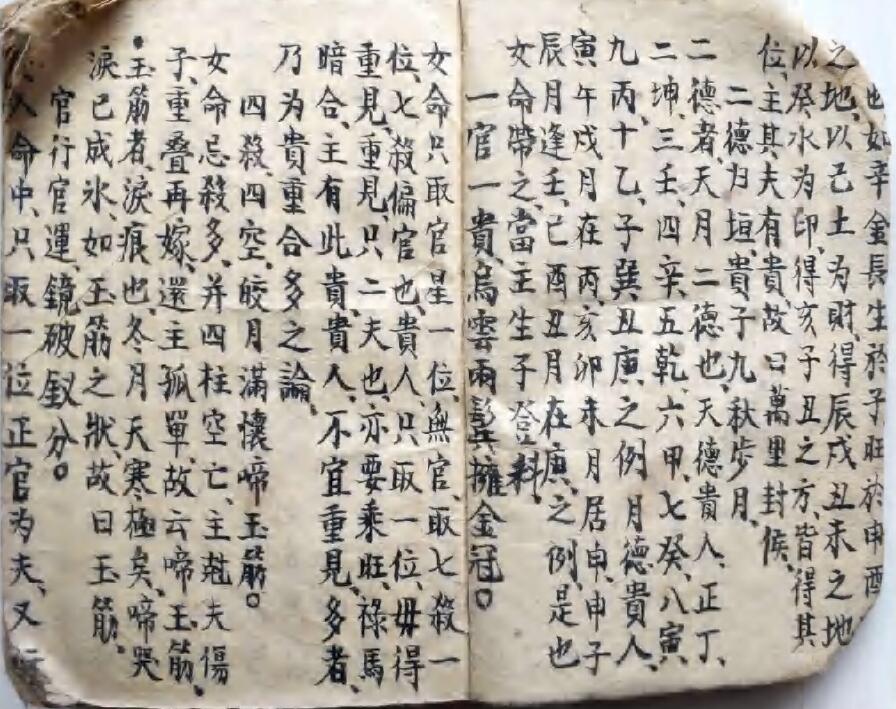 也如辛金長生於子旺於申酉
之地、以己土为財、得辰戌丑未之地
以癸水为印、得亥子丑之方、皆得其
位、主其夫有貴、故曰萬里封侯、
二德归垣、貴子九秋步月、
二德者、天月二德也、天德貴人、正丁、
二坤、三壬、四辛、五乾、六甲、七癸、八寅、
九丙、十乙、子巽、丑庚、之例月德貴人、
寅午戌月在丙、亥卯未月居甲、申子
辰月逢壬、巳酉丑月在庚、之例、是也
女命帶之、當主生子登科、
一官一貴、烏雲兩鬢擁金冠。
女命只取官星一位、無官、取七殺一
位、七殺偏官也、貴人、只取一位、毋得
重見、重見、只二夫也、亦要乘旺、祿馬
暗合、主有此貴、貴人、不宜重見、多者、
乃为貴重合多之論、
四殺、四空、皎月滿懷啼玉筋。
女命忌殺多、并四柱空亡、主尅夫傷
子、重叠再嫁、還主孤單、故云啼玉筋、
玉筋者、淚痕也、冬月天寒極矣、啼哭
淚已成氷、如玉筋之狀、故曰玉筋、
官行官運、鏡破釵分。
人命中、只取一位正官为夫、又行